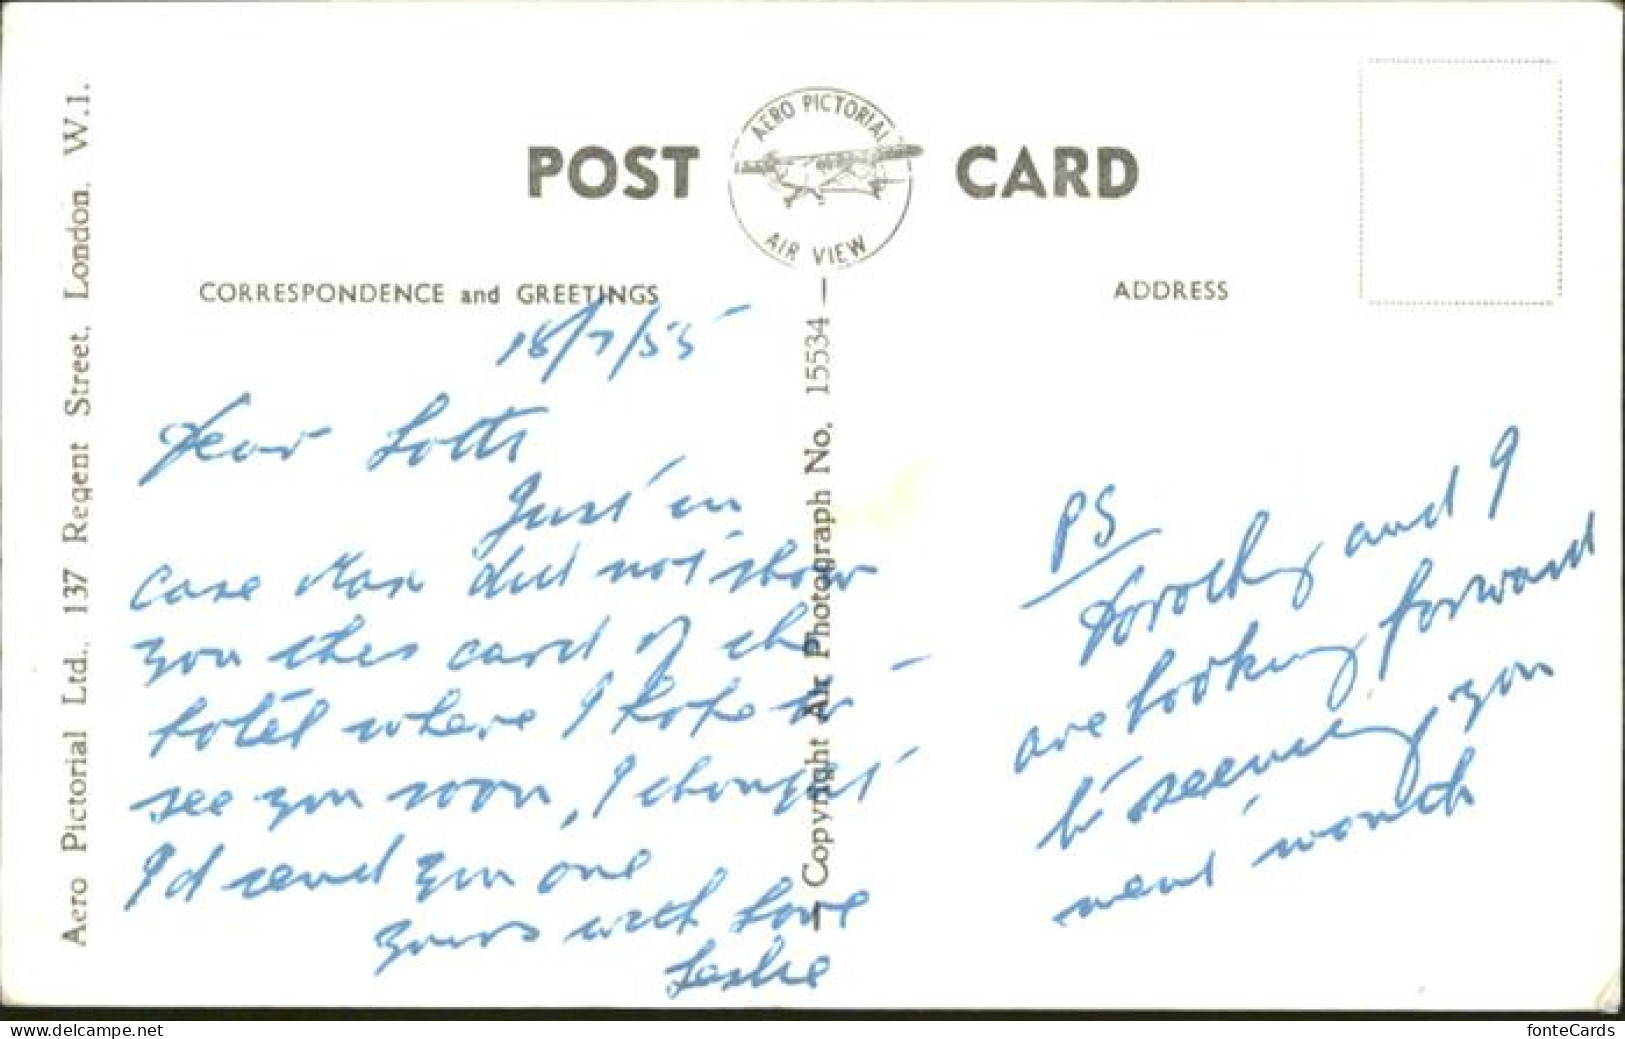 Aero Pictorial Ltd., 137 Regent Street, London. W.1.
POST CARD
AERO PICTORIAL
AIR VIEW
CORRESPONDENCE and GREETINGS
ADDRESS
— Copyright Air Photograph No. 15534 —
18/7/55
Dear
Just in
case Max did not show
you this card of the
hotel where I hope to
see you soon, I thought
I'd send you one
yours with love
Leslie
PS
Dorothy and I
are looking forward
to seeing you
next month
www.delcampe.net
fonteCards